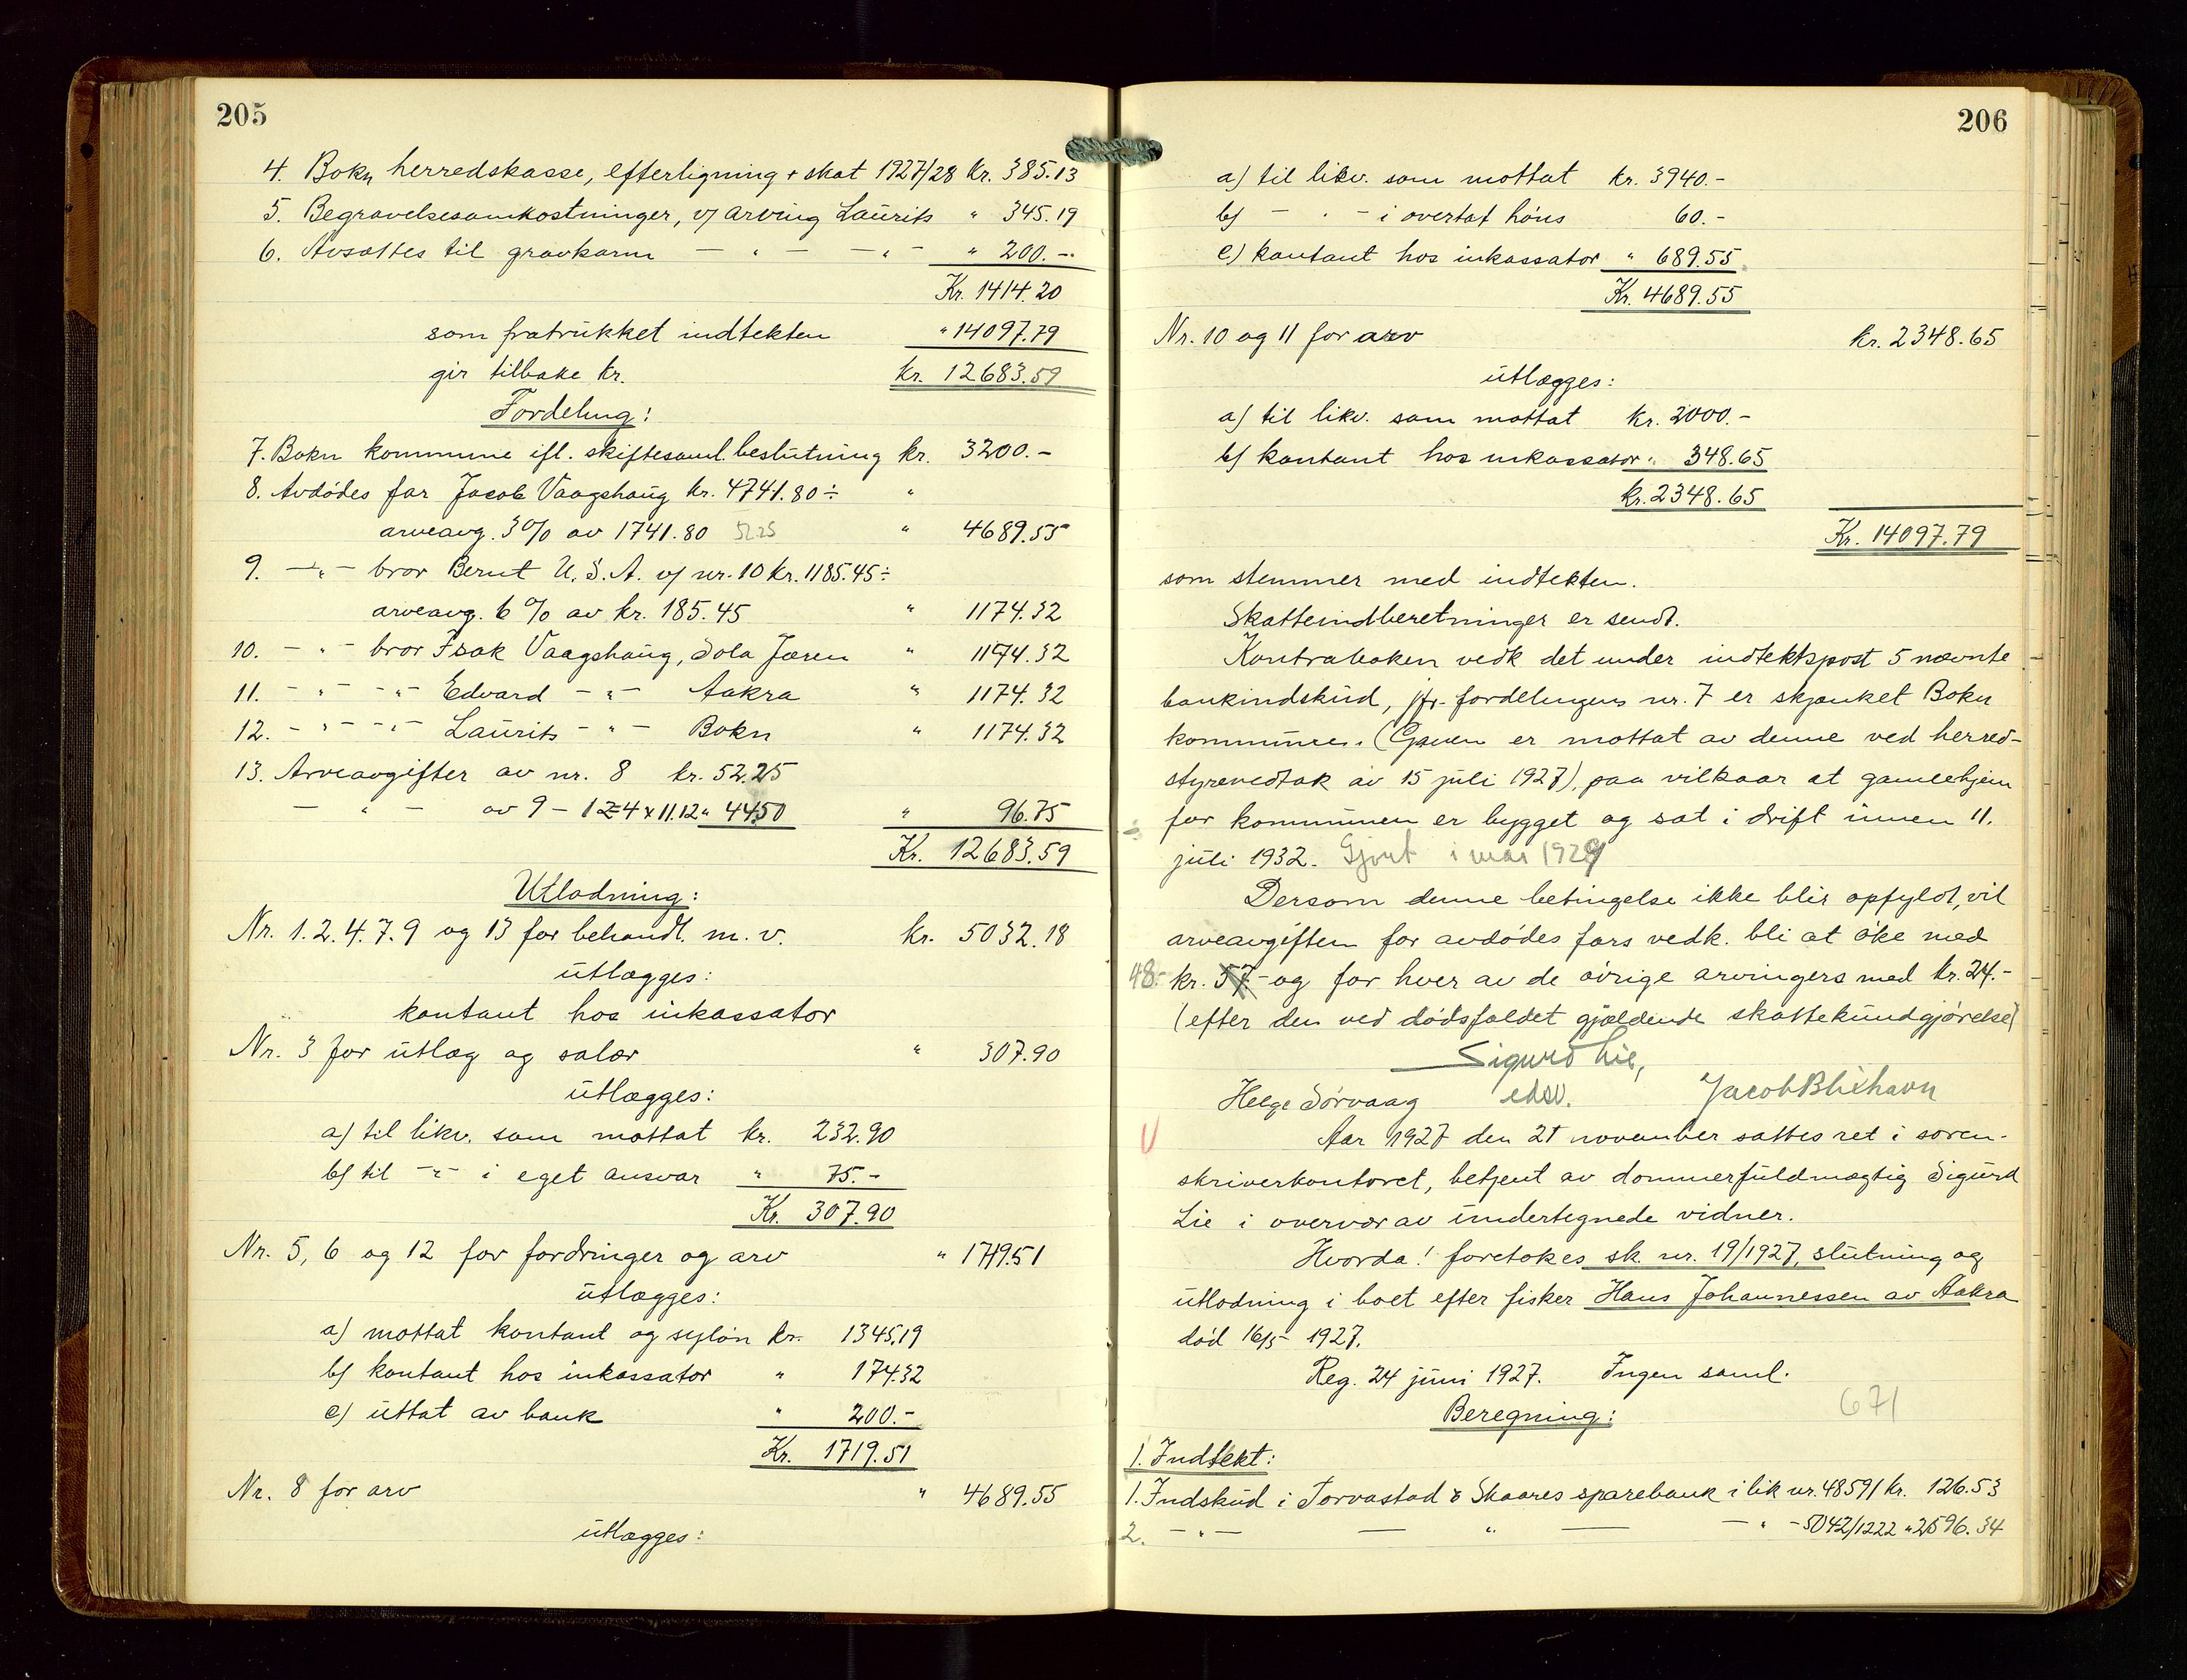 205
4. Bokn herredskasse, efterligning + skat 1927/28 kr. 385.13
5. Begravelsesomkostninger, v/ arving Laurits " 345.19
6. Avsættes til gravkarm — " — — " — " 200.-
Kr. 1414.20
som fratrukket indtekten " 14097.79
gir tilbake kr. kr. 12683.59
Fordeling:
7. Bokn kommune ifl. skiftesaml. beslutning kr. 3200.-
8. Avdødes far Jacob Vaagshaug kr. 4741.80 ÷ "
arveavg. 3% av 1741.80 52.25 " 4689.55
9. — " — bror Bernt U.S.A. v/ nr. 10 kr. 1185.45 ÷
arveavg. 6% av kr. 185.45 " 1174.32
10. — " — bror Isak Vaagshaug, Sola Jæren " 1174.32
11. — " — — " — Edvard — " — Aakra " 1174.32
12. — " — — " — Laurits — " — Bokn " 1174.32
13. Arveavgifter av nr. 8 kr. 52.25
— " — av 9 - 12 4 x 11.12 " 44.50 " 96.75
Kr. 12683.59
Utlodning:
Nr. 1. 2. 4. 7. 9 og 13 for behandl. m. v. kr. 5032.18
utlægges:
kontant hos inkassator
Nr. 3 for utlæg og salær " 307.90
utlægges:
a) til likv. som mottat kr. 232.90
b) til — " — i eget ansvar " 75.-
Kr. 307.90
Nr. 5, 6 og 12 for fordringer og arv " 1719.51
utlægges:
a) mottat kontant og syløn kr. 1345.19
b) kontant hos inkassator " 174.32
c) uttat av bank " 200.-
Kr. 1719.51
Nr. 8 for arv " 4689.55
utlægges:
206
a) til likv. som mottat kr. 3940.-
b) — " — i overtat høns 60.-
c) kontant hos inkassator " 689.55
Kr. 4689.55
Nr. 10 og 11 for arv kr. 2348.65
utlægges:
a) til likv. som mottat kr. 2000.-
b) kontant hos inkassator " 348.65
kr. 2348.65
Kr. 14097.79
som stemmer med indtekten.
Skatteindberetninger er sendt.
Kontraboken vedk det under indtektspost 5 nævnte
bankindskud, jfr. fordelingens nr. 7 er skjænket Bokn
kommune. (Gaven er mottat av denne ved herred-
styrevedtak av 15 juli 1927), paa vilkaar at gamlehjem
for kommunen er bygget og sat i drift innen 11.
juli 1932. Gjort i mai 1929
Dersom denne betingelse ikke blir opfyldt, vil
arveavgiften for avdødes fars vedk. bli at øke med
48.- kr. 57.- og for hver av de øvrige arvingers med kr. 24.-
(efter den ved dødsfaldet gjældende skattekundgjørelse)
Sigurd Lie,
Helge Sørvaag edsv. Jacob Blixhavn
Aar 1927 den 21 november sattes ret i soren-
skriverkontoret, betjent av dommerfuldmægtig Sigurd
Lie i overvær av undertegnede vidner.
Hvorda! foretokes sk. nr. 19/1927, slutning og
utlodning i boet efter fisker Hans Johannessen av Aakra
død 16/5- 1927.
Reg. 24 juni 1927. Ingen saml.
Beregning: 671
1. Indtekt:
1. Indskud i Torvastad & Skaares sparebank i lik nr. 48591 kr. 126.53
2. — " — — " — — " - 5042/1222 " 2596.34